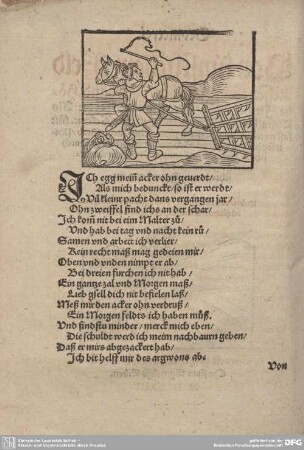 ICh egg mein acker ohn geuerdt/
Als mich bedunckt/ so ist er werdt/
Vil kleinr pacht dans vergangen jar/
Ohn zweiffel find ichs an der schar/
Ich kom̃ nit bei eim Malter zů/
Vnd hab bei tag vnd nacht kein rů/
Samen vnd arbeit ich verlier/
Kein recht maß mag gedeien mir/
Oben vnd vnden nimpt er ab/
Bei dreien furchen ich nit hab/
Ein gantze zal vnd Morgen maß/
Lieb gsell dich nit befielen laß/
Meß mir den acker ohn verdruß/
Ein Morgen feldts ich haben můß.
Vnd findstu minder/ merck mich eben/
Die schuldt werd ich meim nachbaurn geben/
Daß er mirs abgezackert hab/
Ich bit helff mir des argwons ab.
Von